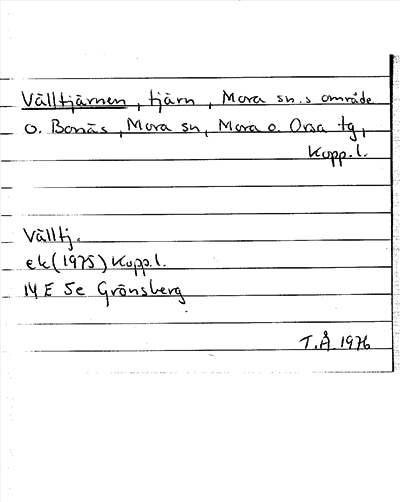 Välltjärnen, tjärn, Mora sn.s område
o. Bonäs, Mora sn, Mora o. Orsa tg,
Kopp.l.
Välltj.
ek(1975) Kopp.l.
14 E 5e Grönsberg
T.Å. 1976